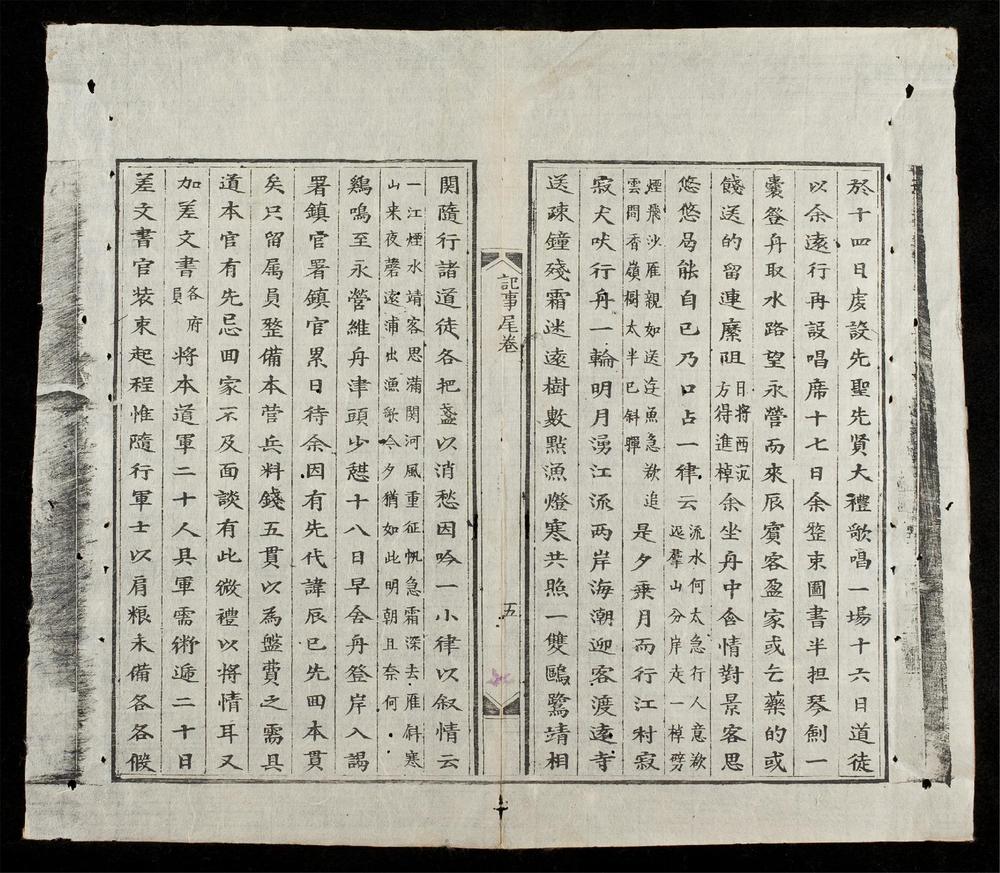 於十四日虔設先聖先賢大禮歌唱一場十六日道徒
以余遠行再設唱席十七日余整束圖書半担琴劍一
囊登舟取水路望永營而來辰賓客盈家或乞藥的或
餞送的留連縻阻日將西沉方得進棹余坐舟中含情對景客思
悠悠曷能自已乃口占一律云流水何太急行人意欲遲羣山分岸走一棹劈
煙飛沙雁親如送魚急欲追雲問香嶺樹太半已斜暉是夕乘月而行江村寂
寂犬吠行舟一輪明月湧江流两岸海潮迎客渡遠寺
送疎鐘殘霜迷遠樹數點漁燈寒共照一雙鷗鷺靖相
記事尾卷
五
関隨行諸道徒各把盞以消愁因吟一小律以叙情云
一江煙水靖客思滿関河風重征帆急霜深去雁斜寒
山来夜磬遠浦出漁歌今夕猶如此明朝且奈何
鷄鳴至永營維舟津頭少憇十八日早舍舟登岸入謁
署鎮官署鎮官累日待余因有先代諱辰已先囬本貫
矣只留属員整備本营兵料錢五貫以為盤費之需具
道本官有先忌囬家不及面談有此微禮以將情耳又
加差文書各府員將本道軍二十人具軍需遞二十日
差文書官装束起程惟隨行軍士以肩粮未備各各假